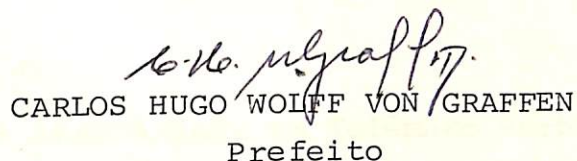 CARLOS HUGO WOLFF VON GRAFFEN
Prefeito